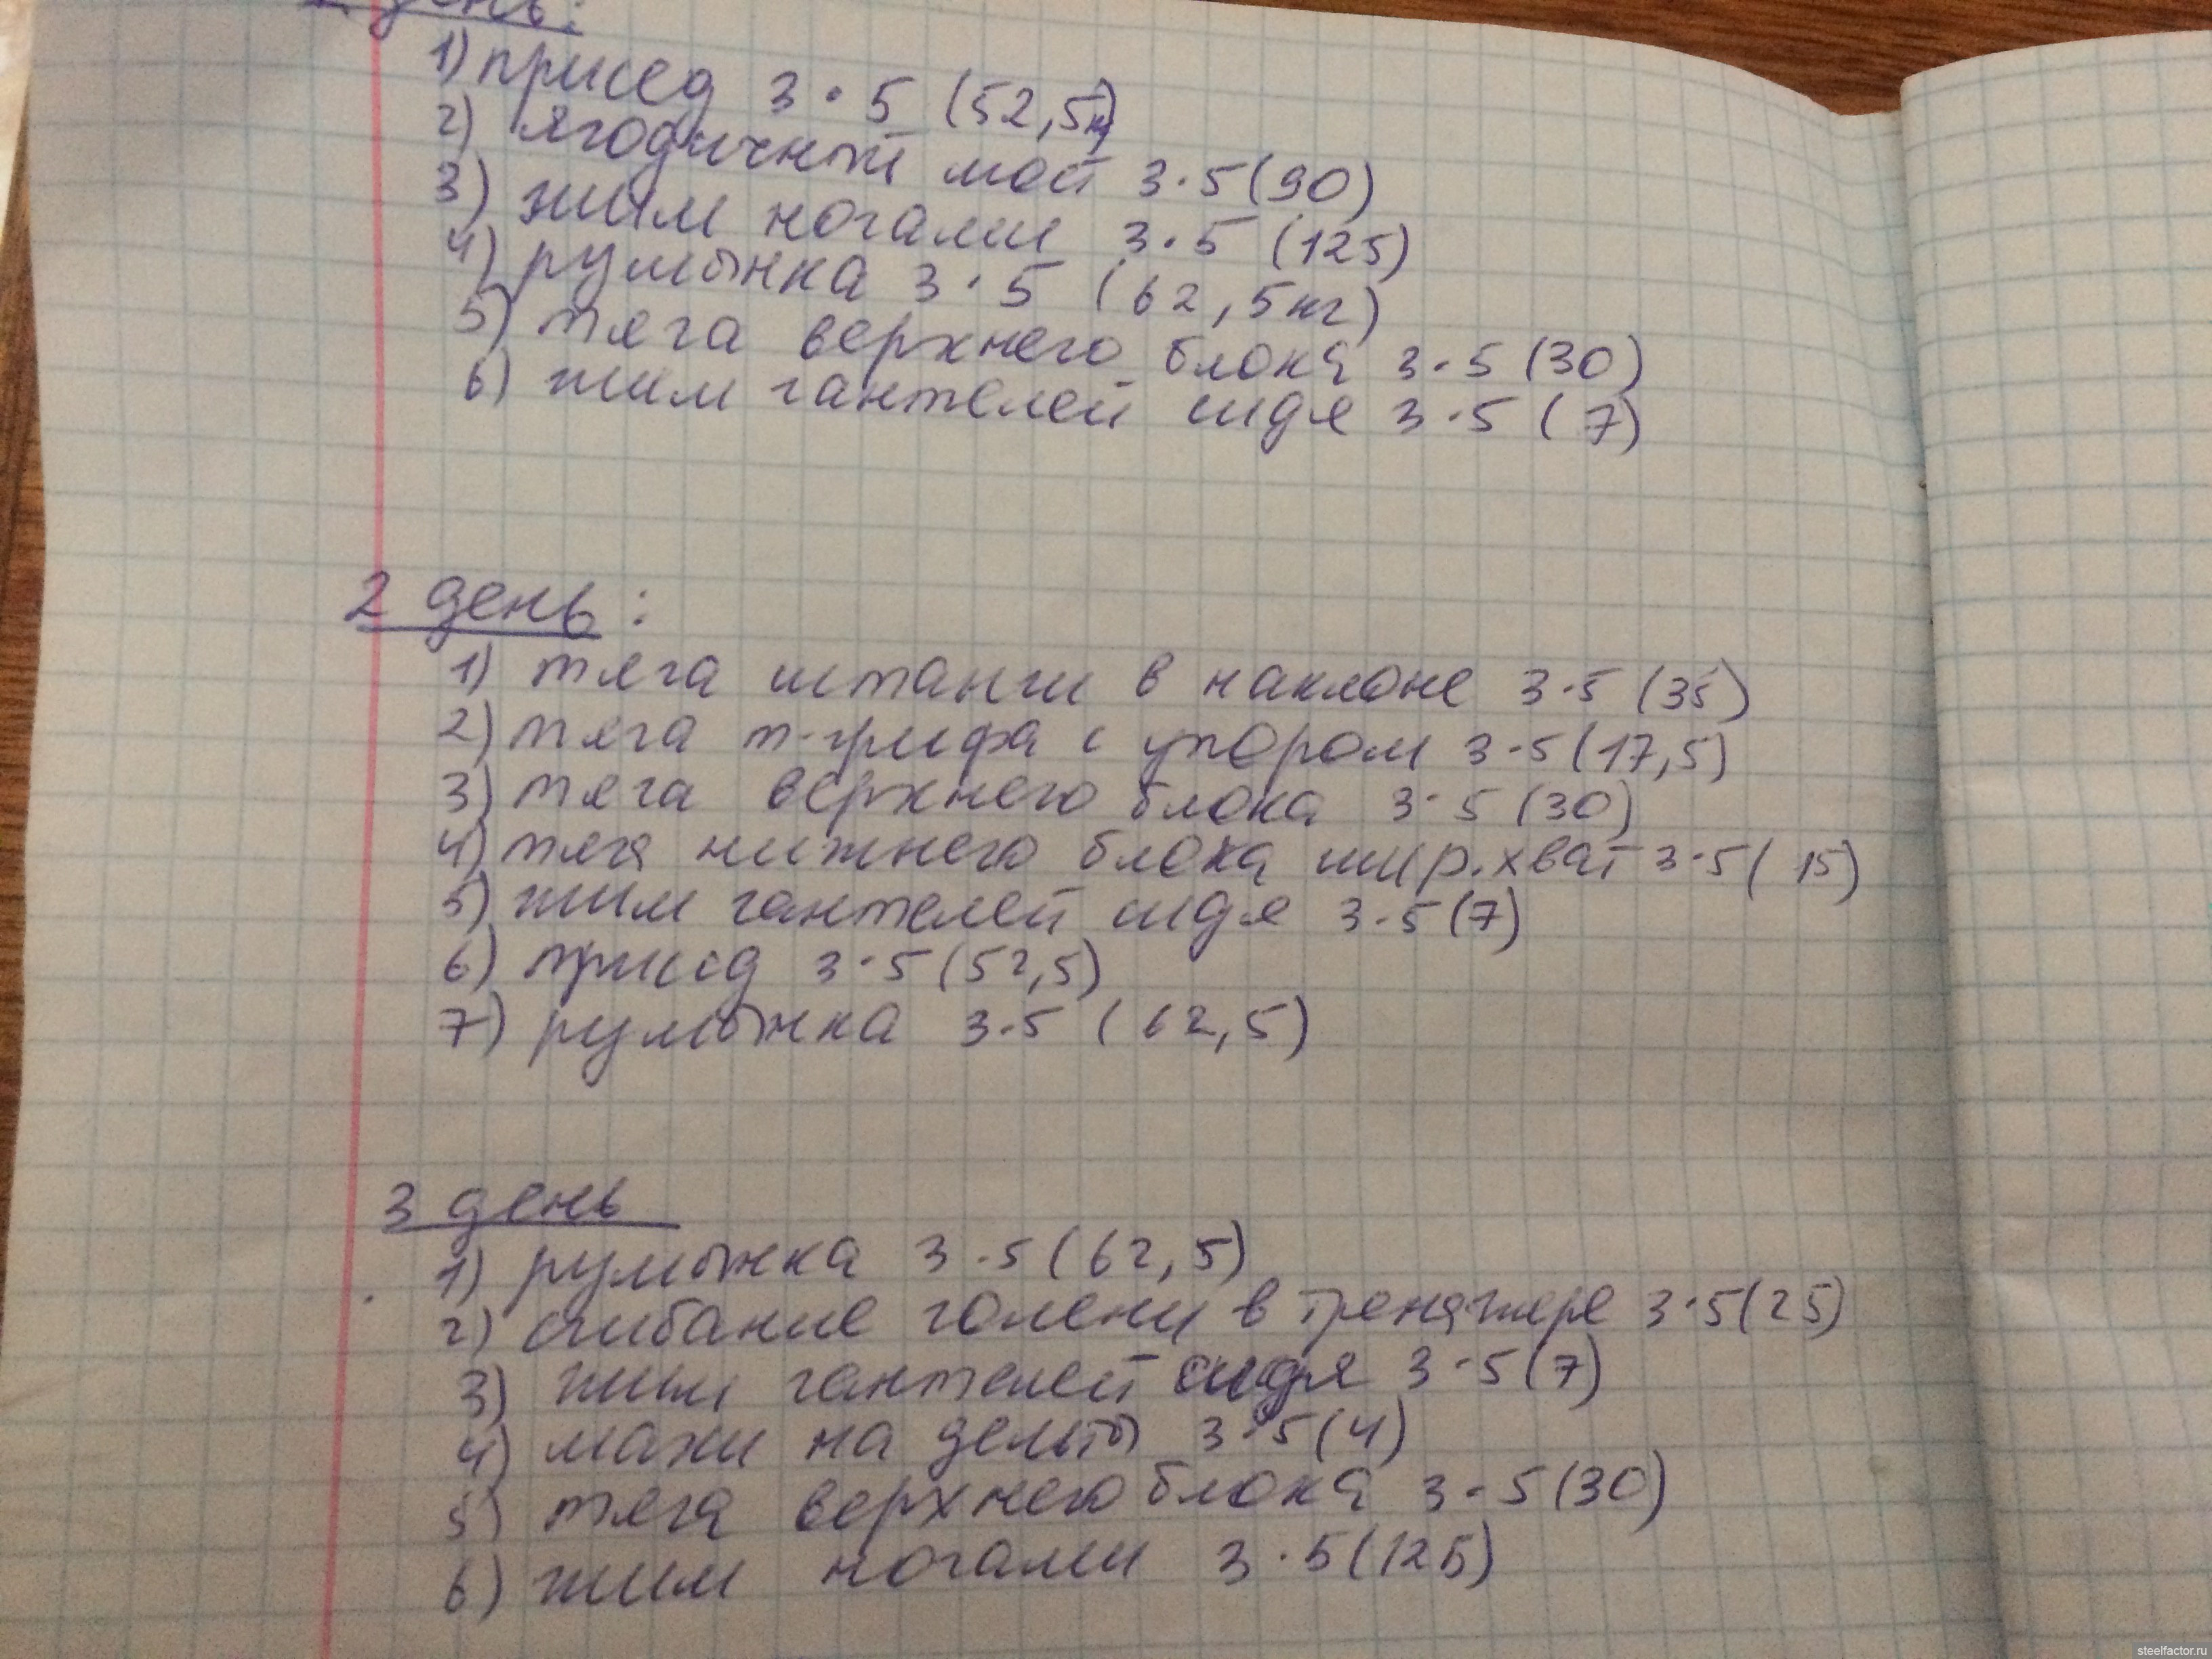 день:
1) присед 3·5 (52,5кг)
2) ягодичный мост 3·5 (90)
3) жим ногами 3·5 (125)
4) румынка 3·5 (62,5кг)
5) тяга верхнего блока 3·5 (30)
6) жим гантелей сидя 3·5 (7)
2 день:
1) тяга штанги в наклоне 3·5 (35)
2) тяга т-грифа с упором 3·5 (17,5)
3) тяга верхнего блока 3·5 (30)
4) тяга нижнего блока шир.хват 3·5 (15)
5) жим гантелей сидя 3·5 (7)
6) присед 3·5 (52,5)
7) румынка 3·5 (62,5)
3 день
1) румынка 3·5 (62,5)
2) сгибание голени в тренажере 3·5 (25)
3) жим гантелей сидя 3·5 (7)
4) махи на дельты 3·5 (4)
5) тяга верхнего блока 3·5 (30)
6) жим ногами 3·5 (125)
steelfactor.ru